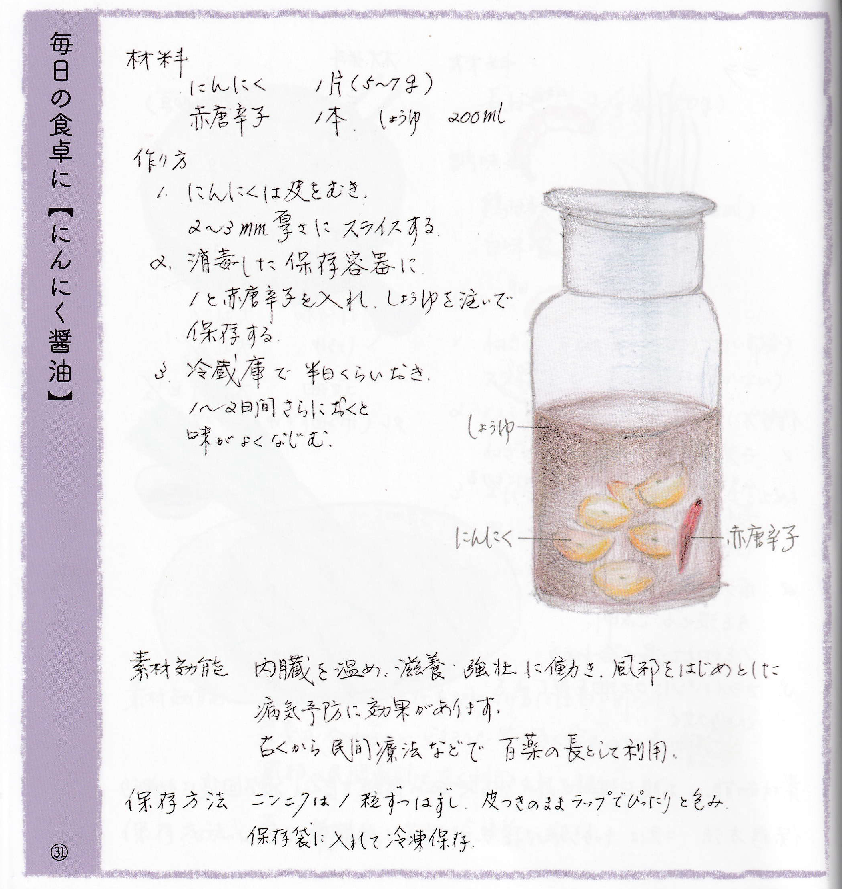 毎日の食卓に【にんにく醤油】
材料
にんにく 1片(5〜7g)
赤唐辛子 1本. しょうゆ 200ml
作り方
1. にんにくは皮をむき.
2〜3mm厚さにスライスする.
2. 消毒した保存容器に.
1と赤唐辛子を入れ.しょうゆを注いで
保存する.
3. 冷蔵庫で半日くらいおき.
1〜2日間さらにおくと
味がよくなじむ.
しょうゆ
にんにく
赤唐辛子
素材効能 内臓を温め.滋養・強壮に働き.風邪をはじめとした
病気予防に効果があります.
古くから民間療法などで 百薬の長として利用.
保存方法 ニンニクは1粒ずつはずし.皮つきのままラップでぴったりと包み.
保存袋に入れて冷凍保存.
31